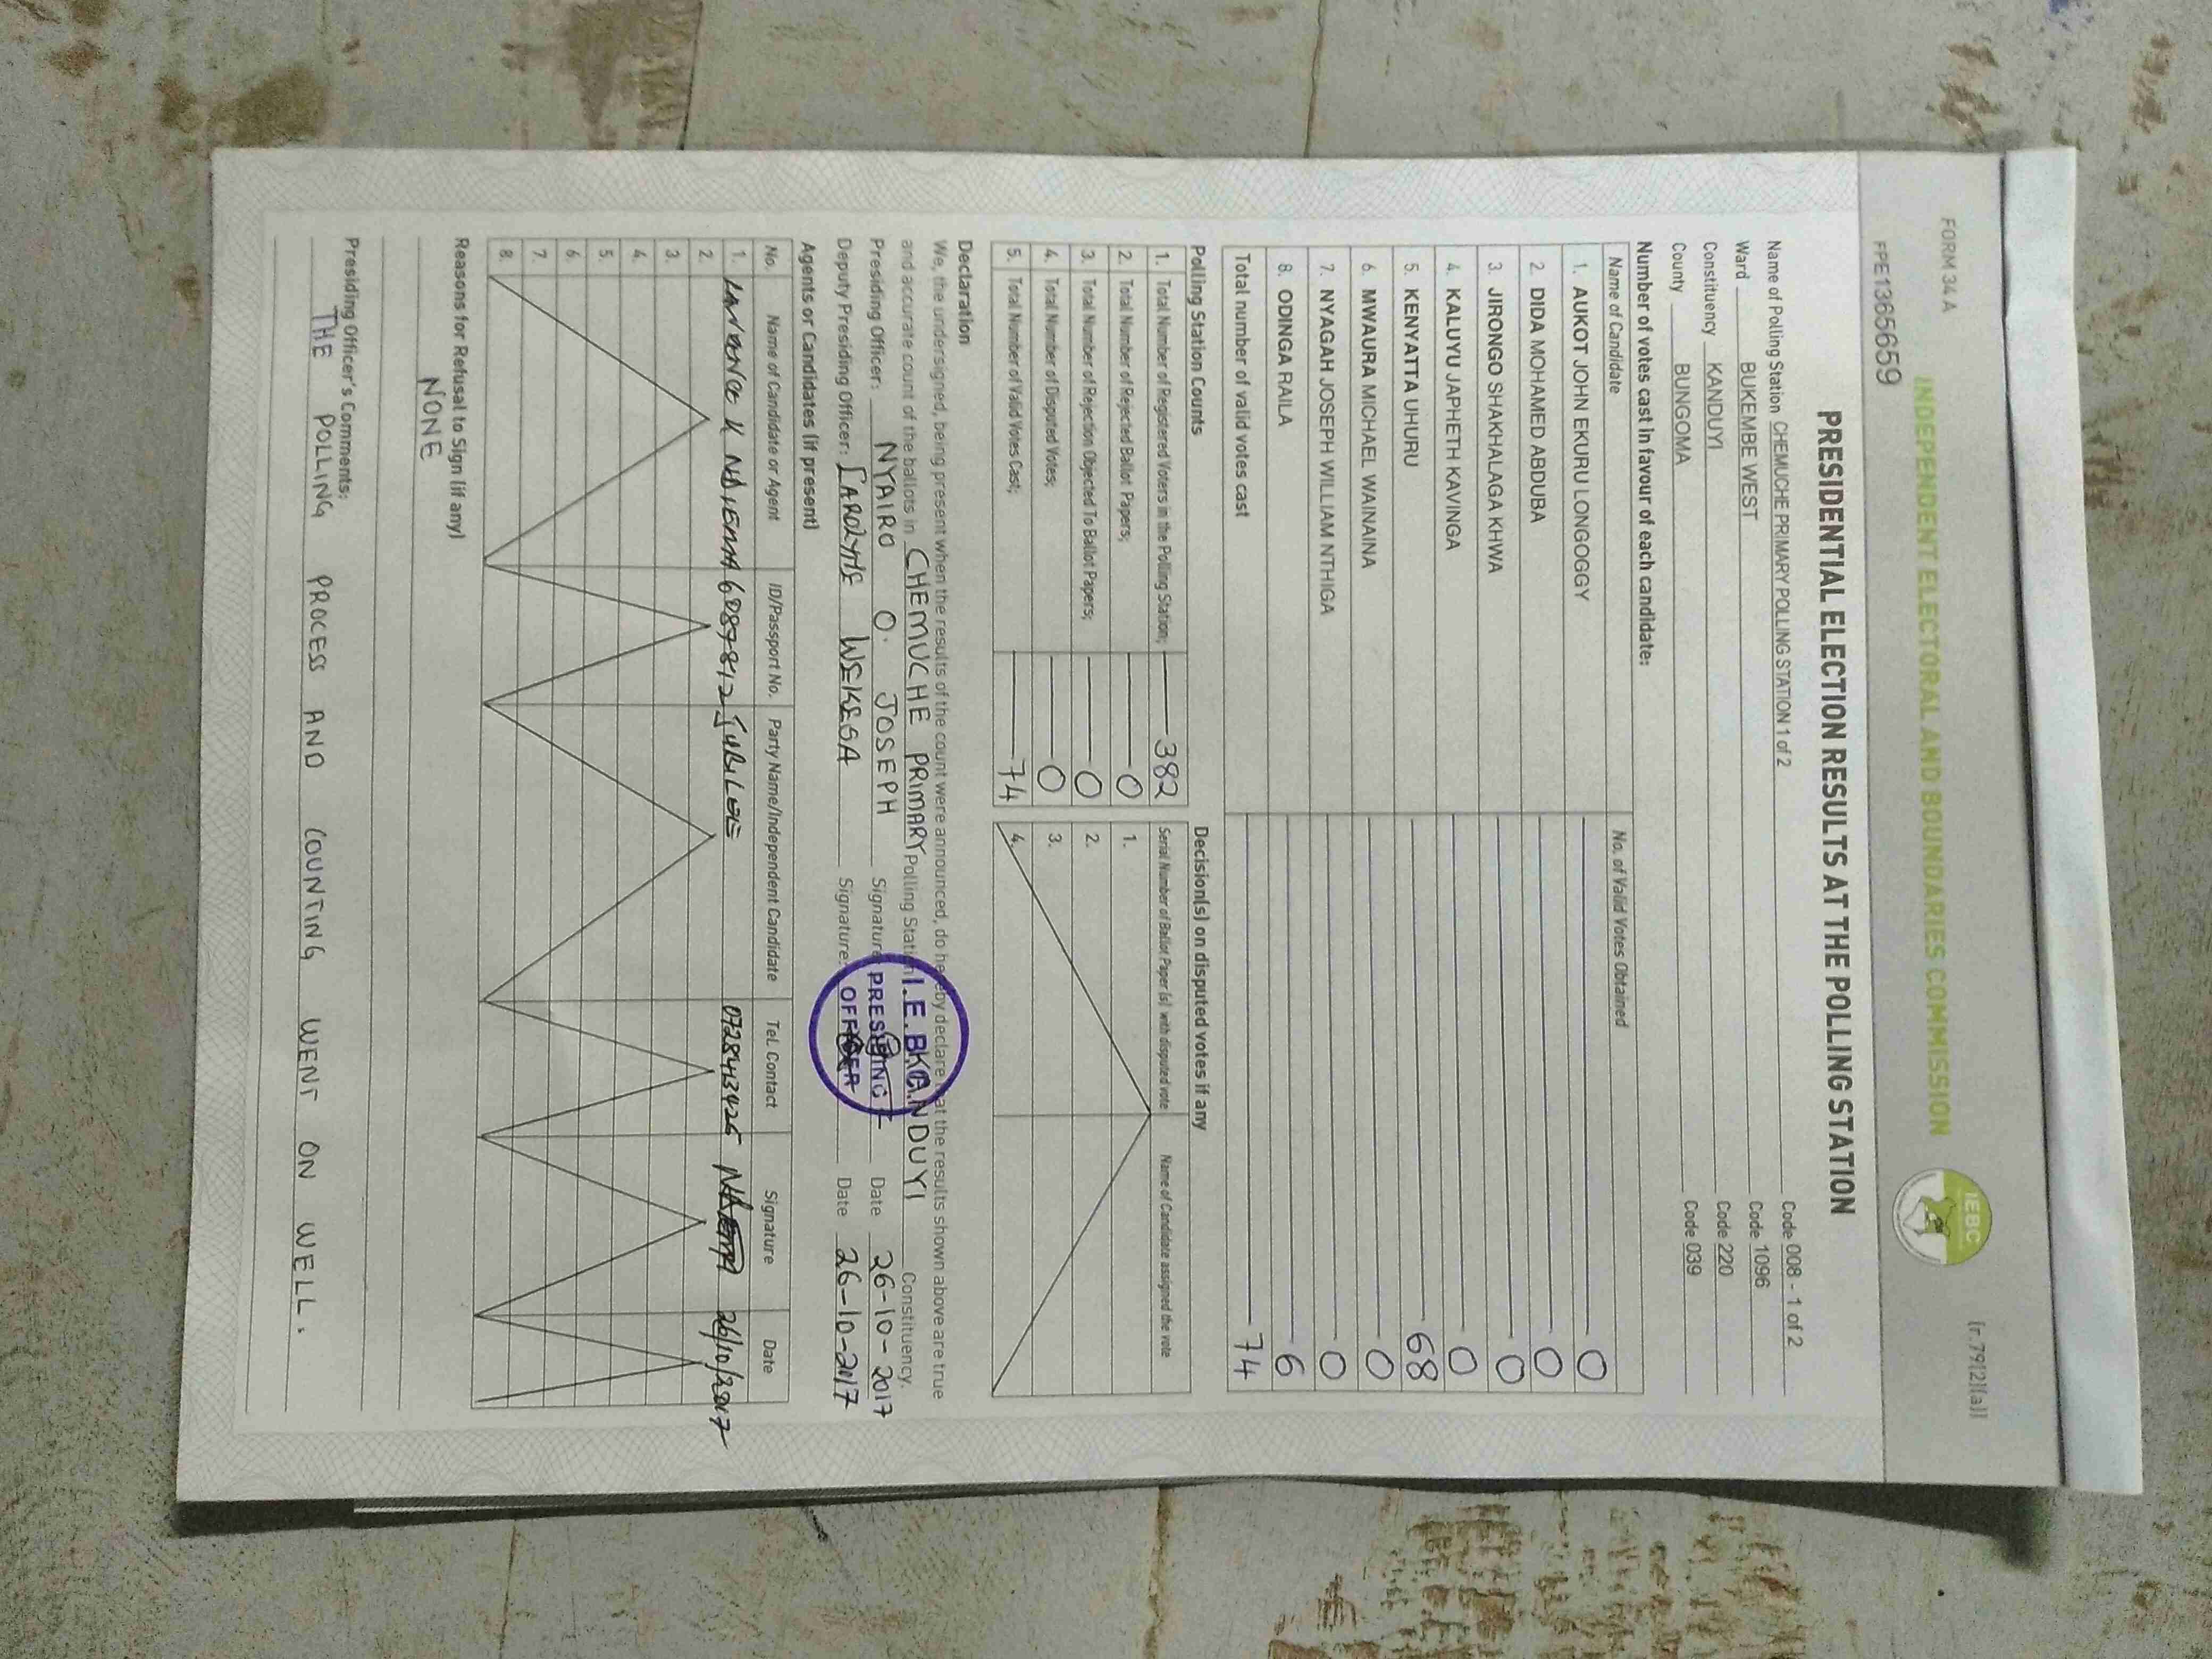 FORM 34 A
[r.79(2)(a)]
INDEPENDENT ELECTORAL AND BOUNDARIES COMMISSION
IEBC
FPE1365659
PRESIDENTIAL ELECTION RESULTS AT THE POLLING STATION
Name of Polling Station CHEMUCHE PRIMARY POLLING STATION 1 of 2 Code 008 - 1 of 2
Ward BUKEMBE WEST Code 1096
Constituency KANDUYI Code 220
County BUNGOMA Code 039
Number of votes cast in favour of each candidate:
Name of Candidate No. of Valid Votes Obtained
1. AUKOT JOHN EKURU LONGOGGY 0
2. DIDA MOHAMED ABDUBA 0
3. JIRONGO SHAKHALAGA KHWA 0
4. KALUYU JAPHETH KAVINGA 0
5. KENYATTA UHURU 68
6. MWAURA MICHAEL WAINAINA 0
7. NYAGAH JOSEPH WILLIAM NTHIGA 0
8. ODINGA RAILA 6
Total number of valid votes cast 74
Polling Station Counts
1. Total Number of Registered Voters in the Polling Station; 382
2. Total Number of Rejected Ballot Papers; 0
3. Total Number of Rejection Objected To Ballot Papers; 0
4. Total Number of Disputed Votes; 0
5. Total Number of Valid Votes Cast; 74
Decision(s) on disputed votes if any
Serial Number of Ballot Paper (s) with disputed vote Name of Candidate assigned the vote
1.
2.
3.
4.
Declaration
We, the undersigned, being present when the results of the count were announced, do hereby declare that the results shown above are true
and accurate count of the ballots in CHEMUCHE PRIMARY Polling Station KANDUYI Constituency.
Presiding Officer: NYAIRO O. JOSEPH Signature: Date 26-10-2017
Deputy Presiding Officer: CAROLYNE WEKESA Signature: Date 26-10-2017
I.E.B.C.
PRESIDING
OFFICER
Agents or Candidates (if present)
No. Name of Candidate or Agent ID/Passport No. Party Name/Independent Candidate Tel. Contact Signature Date
1. K 6087842 JUBILEE 0728413425 26/10/2017
2.
3.
4.
5.
6.
7.
8.
Reasons for Refusal to Sign (if any)
NONE
Presiding Officer's Comments:
THE POLLING PROCESS AND COUNTING WENT ON WELL.